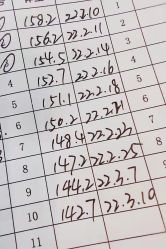 158.2 22.2.10 1
156.2 22.2.11 2
154.5 22.2.14 3
4 152.7 22.2.16 4
5 151.1 22.2.18 5
6 150.2 22.2.21 6
7 148.4 22.2.23 7
8 147.2 22.2.25 8
9 144.2 22.3.7 9
10 142.7 22.3.10 10